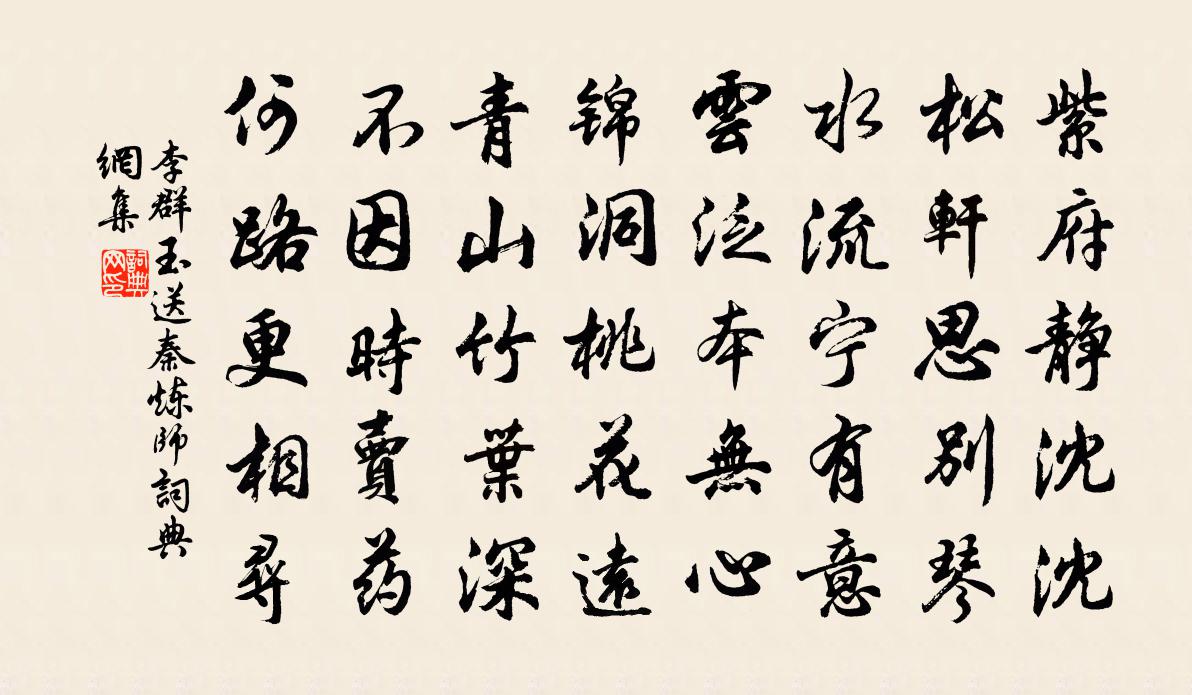 紫府静沈沈
松軒思別琴
水流宁有意
雲泛本無心
锦洞桃花遠
青山竹葉深
不因時賣药
何路更相尋
李群玉送秦炼師詞典
網集
詞典
网印